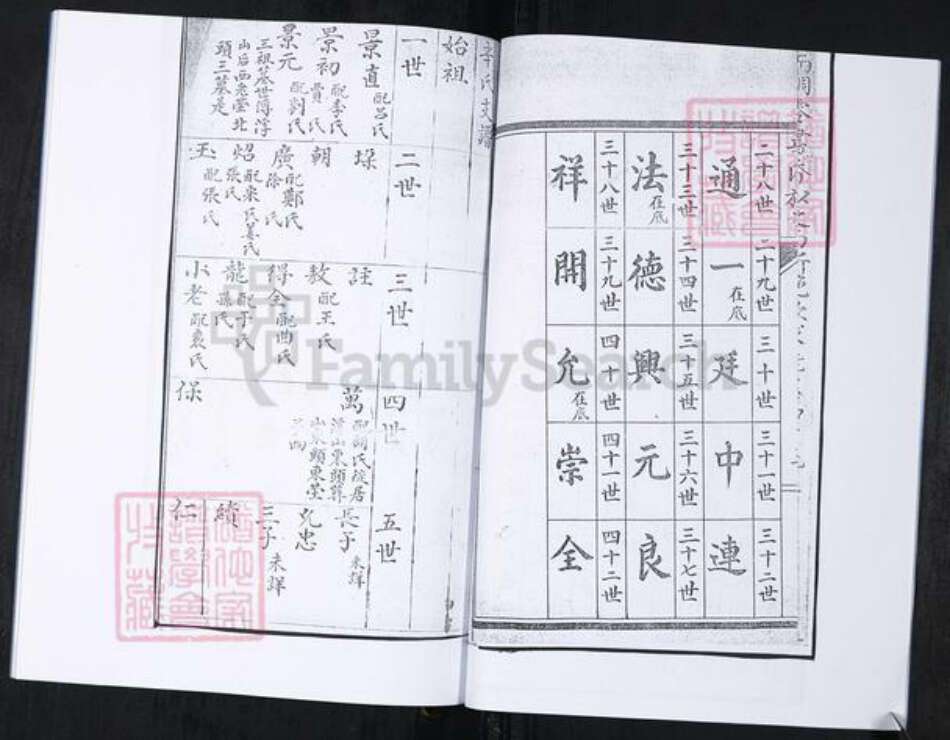 二十八世
通
二十九世
一 在底
三十世
廷
三十一世
中
三十二世
連
三十三世
法 在底
三十四世
德
三十五世
興
三十六世
元
三十七世
良
三十八世
祥
三十九世
開
四十世
允 在底
四十一世
崇
四十二世
全
李氏支譜
始祖
一世
景直 配呂氏
景初 配李氏 賈氏
景元 配劉氏
三祖墓世傳浮
山后西老塋北
頭三墓是
二世
垛
朝
廣 配鄭氏 徐氏
炤 配東氏姜氏 張氏
玉 配張氏
三世
註
敖 配王氏
得全 配曲氏
龍 配于氏 孫氏
小老 配袁氏
四世
萬
保
五世
長子 未詳
允忠
三子 未詳
續
仁
FamilySearch